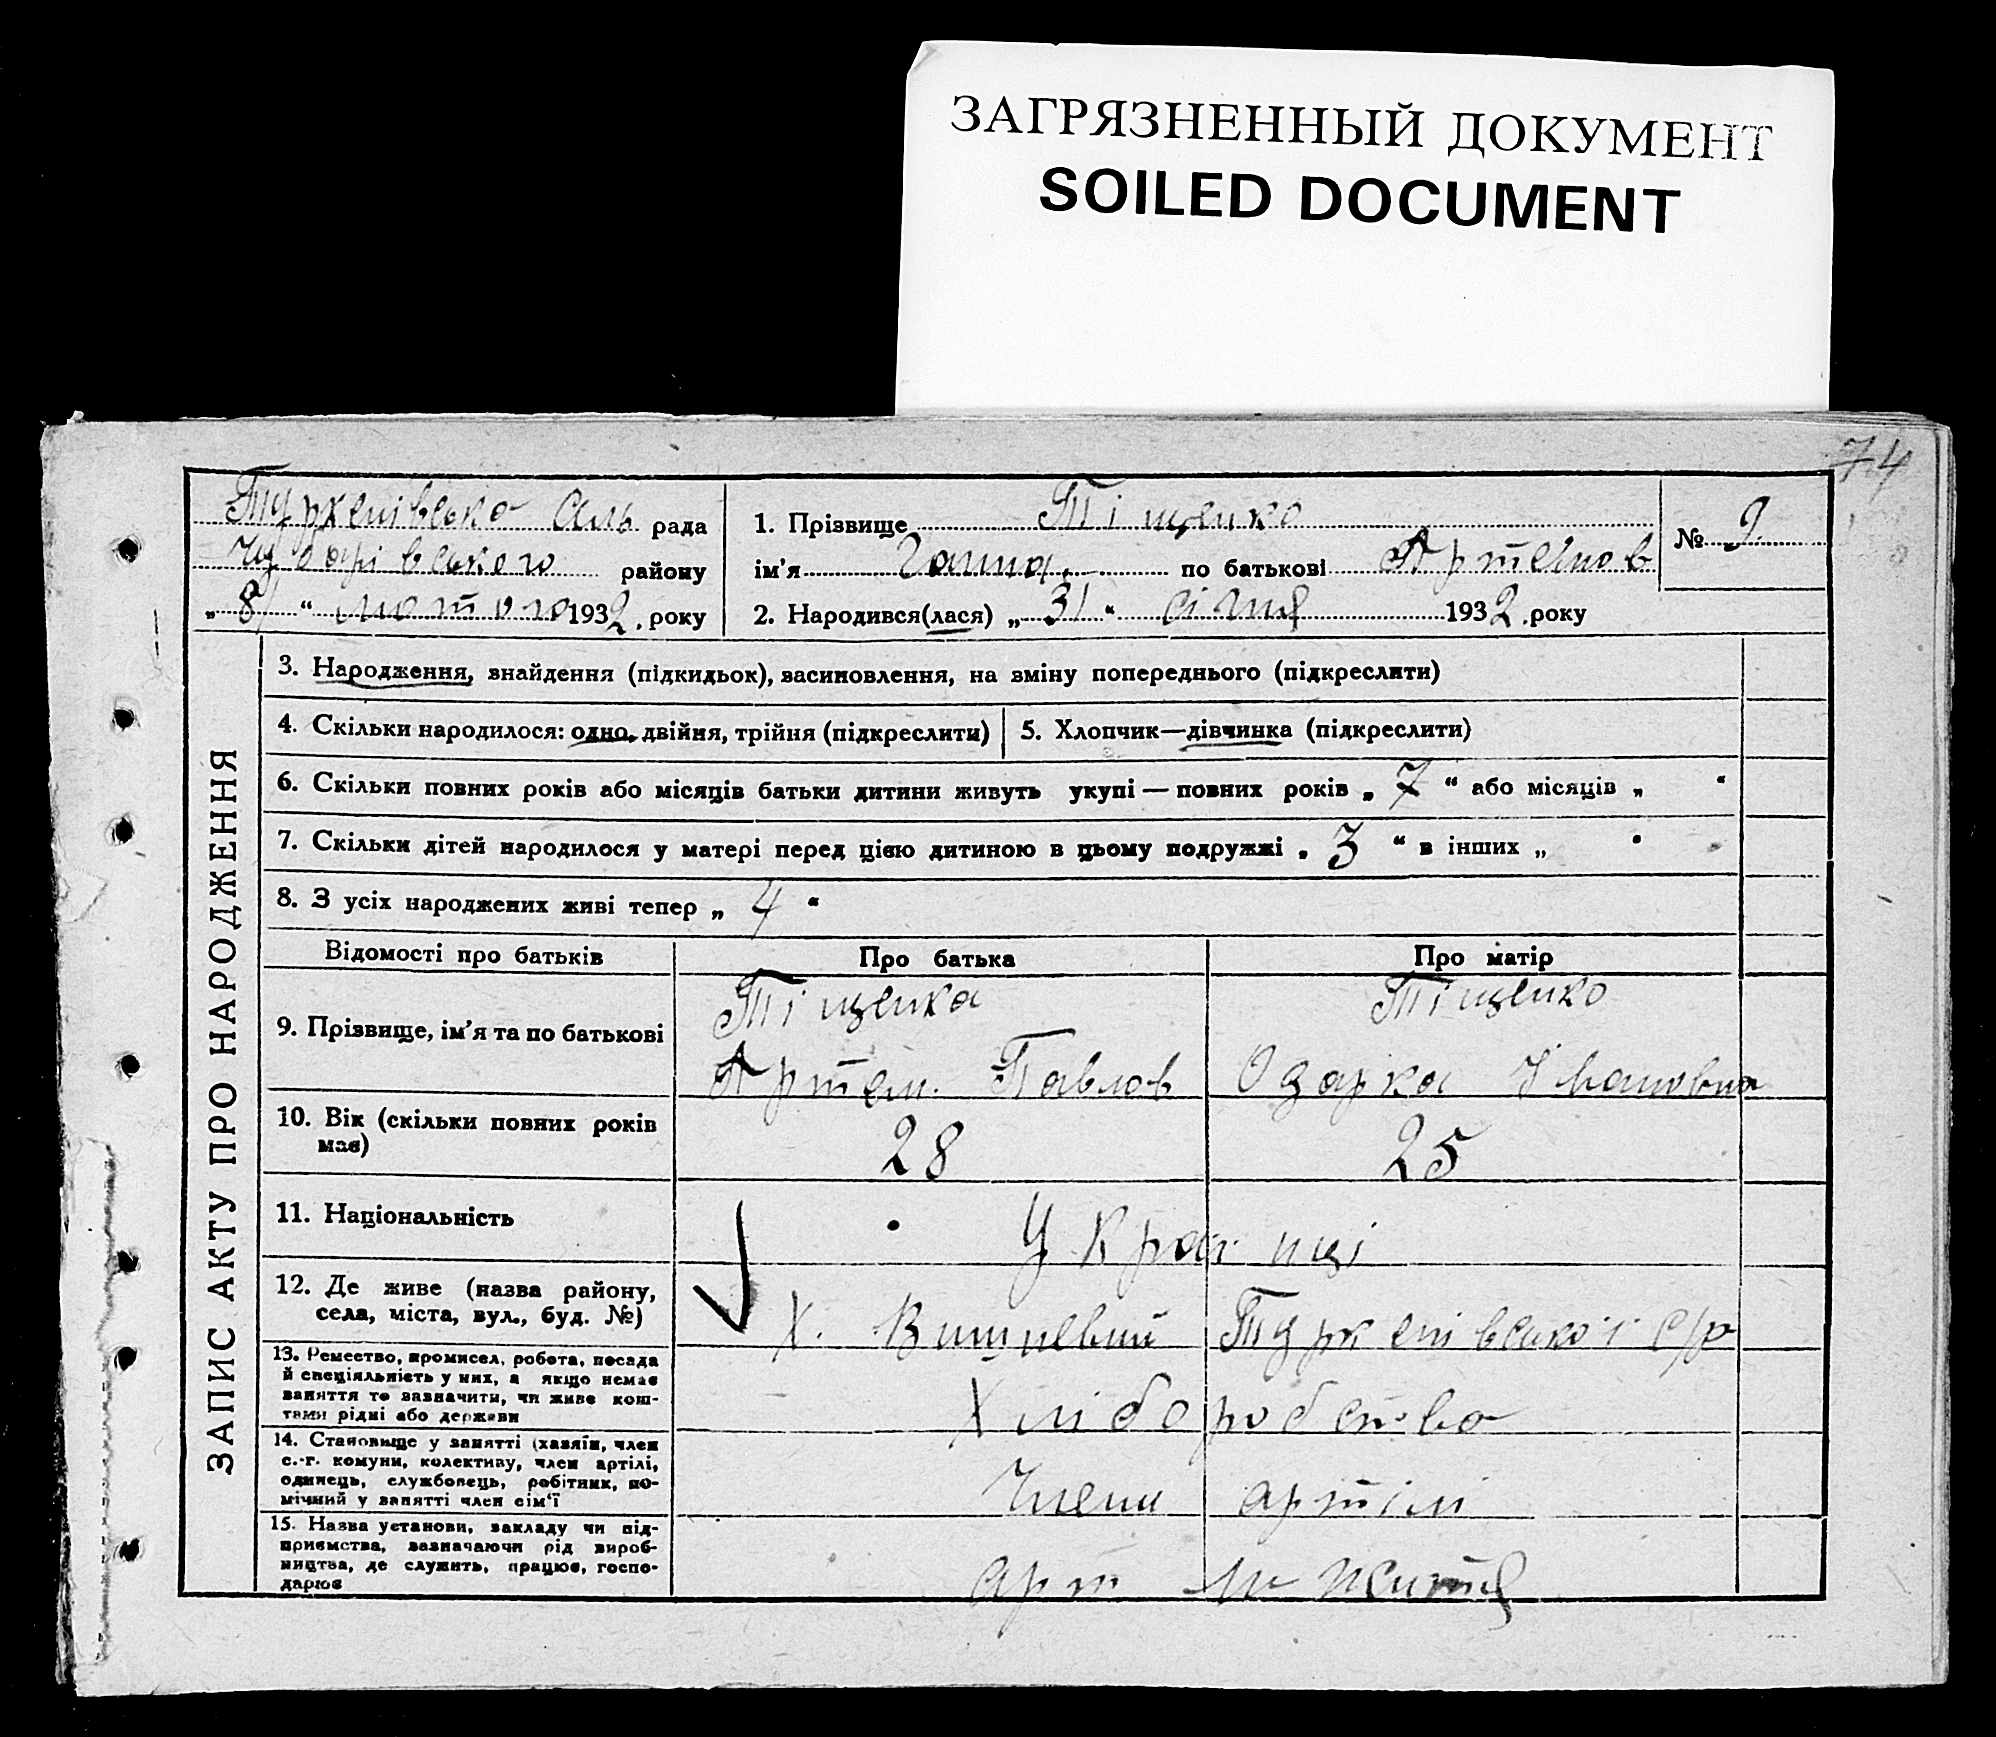 ЗАГРЯЗНЕННЫЙ ДОКУМЕНТ
SOILED DOCUMENT
74
сіль рада
району
„ 8 “ лютого 1932 . року
1. Прізвище Тіщенко
ім’я Ганна по батькові Артемов
2. Народився(лася) „ 31 “ січня 1932 .року
№ 9.
ЗАПИС АКТУ ПРО НАРОДЖЕННЯ
3. Народження, знайдення (підкидьок), засиновлення, на зміну попереднього (підкреслити)
4. Скільки народилося: одно, двійня, трійня (підкреслити)
5. Хлопчик—дівчинка (підкреслити)
6. Скільки повних років або місяців батьки дитини живуть укупі — повних років „ 7 “ або місяців „ “
7. Скільки дітей народилося у матері перед цією дитиною в цьому подружжі „ 3 “ в інших „ “
8. З усіх народжених живі тепер „ 4 “
Відомості про батьків
Про батька
Про матір
9. Прізвище, ім’я та по батькові
Тіщенка
Артем. Павлов
Тіщенко
Одарка Івановна
10. Вік (скільки повних років
має)
28
25
11. Національність
Українці
12. Де живе (назва району,
села, міста, вул., буд. №)
Х. Вишневий с/р
13. Ремество, промисел, робота, посада
й спеціяльність у них, а якщо немає
заняття то зазначити, чи живе кош-
тами рідні або держави
Хліборобство
14. Становище у занятті (хазяїн, член
с.-г. комуни, колективу, член артілі,
одинець, службовець, робітник, по-
мічний у занятті член сім‘ї
Члени артілі
15. Назва установи, закладу чи під-
приємства, зазначаючи рід вироб-
ництва, де служить, працює, госпо-
дарює
арт